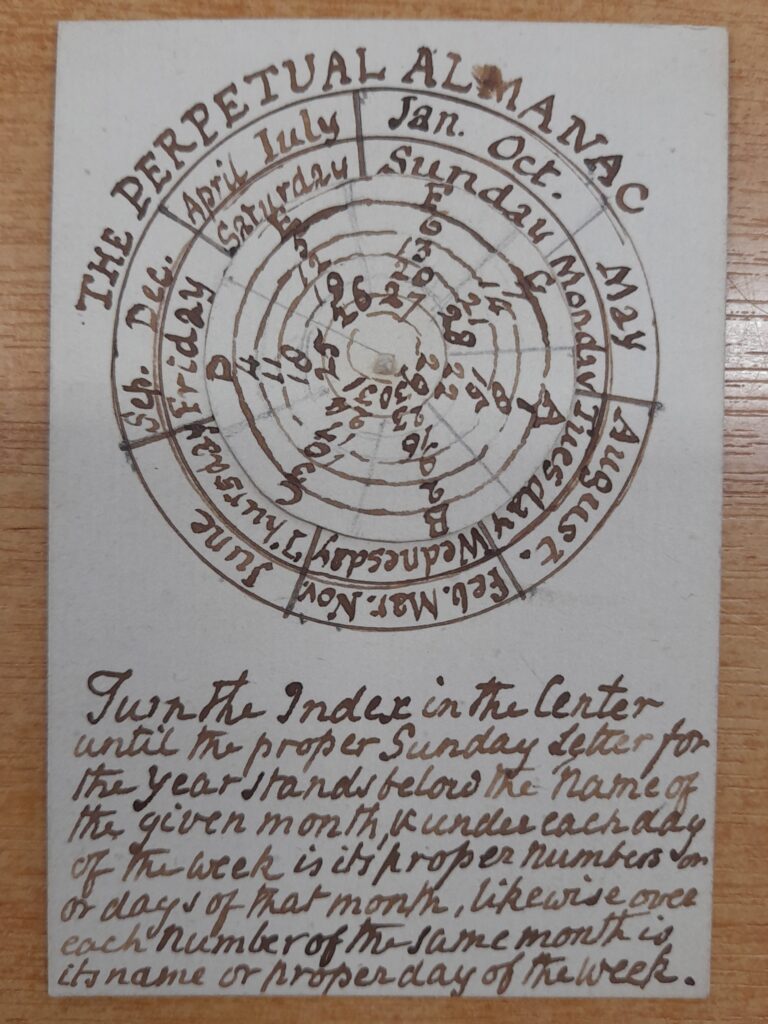 THE PERPETUAL ALMANAC
Jan. Oct.
May
August.
Feb. Mar. Nov.
June
Sep. Dec.
April Iuly
Sunday
Monday
Tuesday
Wednesday
Thursday
Friday
Saturday
F 6 13 20 27
G 7 14 21 28
A 8 15 22 29
B 2 9 16 23 30
C 3 10 17 24 31
D 4 11 18 25
E 5 12 19 26
Turn the Index in the Center
until the proper Sunday Letter for
the Year stands below the Name of
the given month, & under each day
of the week is its proper Numbers or
or days of that month, likewise over
each Number of the same month is
its name or proper day of the Week.